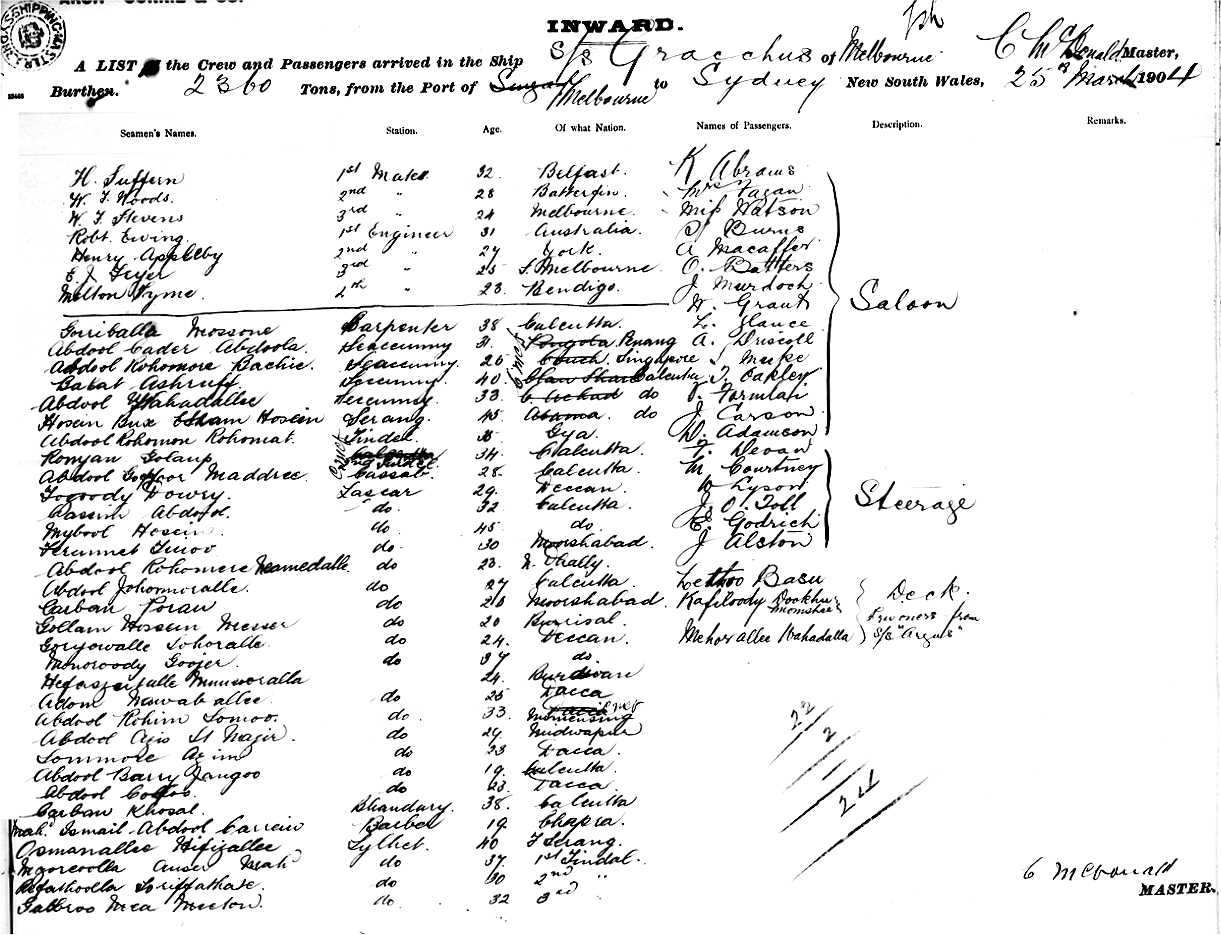 INWARD.
S/S Gracchus of Melbourne C McDonald Master,
A LIST of the Crew and Passengers arrived in the Ship
Burthen. 2360 Tons, from the Port of Melbourne to Sydney New South Wales, 25th March 1904
Seamen's Names. Station. Age. Of what Nation. Names of Passengers. Description. Remarks.
H. Suffern 1st Mate 32 Belfast. K Abrams
W. F. Woods. 2nd " 28 Mrs Fagan
W. F. Stevens 3rd " 24 Melbourne. Miss Watson
Robt. Ewing 1st Engineer 31 Australia. Burns
Henry Appleby 2nd " 27 York. A Macaffer
E J Fryer 3rd " 25 S. Melbourne O. Batters
Melton Pyme. 4th " 23 Bendigo. J Murdoch
W. Grant
Saloon
Gorriballa Mossone Carpenter 38 Calcutta. L. Glance
Abdool Cader Abdoola. Seacunny 31 Penang A. Driscoll
Abdool Rohomore Bachie. Seacunny 26 Singapore Meeke
Babat Ashruff Secunny. 40 Calcutta T. Oakley
Abdool Wahadallee Secunny. 33 do
Hosein Bux Hosein Serang. 45 do J. Carson
Abdool Rohomon Rohomat. Tindel. Gya. D. Adamson
Ronyan Golaup 34 Calcutta. Devan
Abdool Goffoor Maddree Cassab. 28 Calcutta. M. Courtney
Dowry. Lascar 29. Deccan. W Lyson
Cassim Abdool. do. 32 Calcutta. J. O. Toll
Steerage
Mybool Hosein. do. 45 do. Godrich
do. 30 Moorshabad. J Alston
Abdool Rohomere Namedalle do 23. N. Thally.
Abdool Johomoralle. do 27 Calcutta. Lethoo Basu
Carban Poran do 26 Moorshabad. Kafiloody Dookhu Momshee Deck.
Gollam Hossein Messer do 20 Burrisal.
Goryowalle Sohoralle. do 24. Deccan Mehorallee Wahadalla Prisoners from S/S "Argus"
Monoroody Goozer. do 37 do.
Munsoralla 24. Burdwan
Adom Nawaballee. do 25 Dacca
Abdool Rohim Somoo. do. 33. Momensing
Abdool Azis St Nazir. do. 29. Midnapur
Sommore Azim do 33 Dacca.
Abdool Barry Jangoo do 19. Calcutta.
Abdool do. 23. Dacca.
Carban Khosal. Bhandary. 38. Calcutta
Mah. Ismail Abdool Carreem Barber 19. Chapra.
Osmanallee Hifizallee Sylhet. 40 F Serang.
Anser Mah do 37. 1st Tindal.
do 30 2nd "
Meeton. do. 32 3rd "
C McDonald
MASTER.